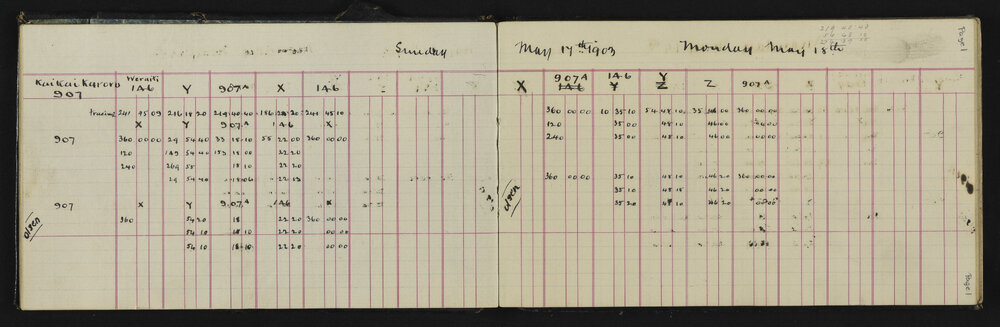 Sunday May 17th 1903 Monday May 18th
Page 1
Kaikai Karoro Weraiti
907 1A6 Y 907A X 1A6
tracing 241 45 09 216 18 20 219 40 40 186 20 241 45 10
X Y 907A 1A6 X
907 360 00 00 29 54 40 33 18 00 55 22 00 360 00 00
120 149 54 40 153 18 00 22 20
240 269 55 18 10 22 20
29 54 40 18 06 22 13
X Y 907A 1A6 X
907
360 54 20 18 22 20 360 00 00
54 10 18 10 22 20 00 00
54 10 18 10 22 20 00 00
Olsen
X 907A 1A6 Y Z 907A
1A6 Y Z
360 00 00 10 35 10 54 48 10 35 46 00 360 00 00
120 35 00 48 10 46 00
240 35 00 48 10 46 00
360 00 00 35 10 48 10 46 20 360 00 00
35 10 48 15 46 20 00 00
35 20 48 10 46 20 00 00
Olsen
Page 1